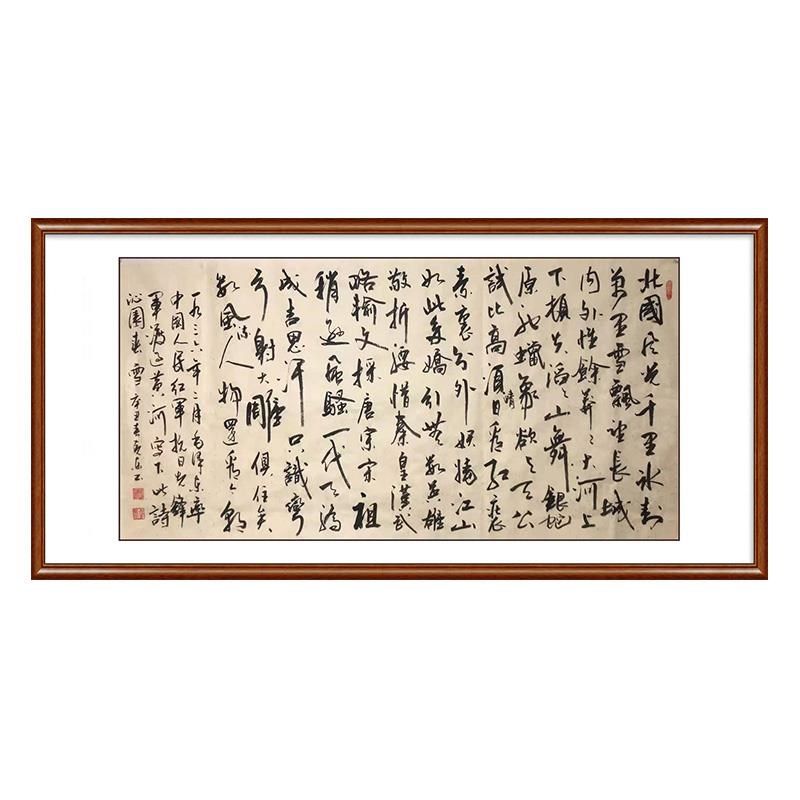 北國风光千里冰封
萬里雪飄望長城
内外惟餘莽々大河上
下頓失滔々山舞銀蛇
原馳蠟象欲与天公
試比高須晴日看红裝
素裹分外妖嬈江山
如此多嬌引無數英雄
競折腰惜秦皇漢武
略輸文採唐宗宋祖
稍遜風騷一代天驕
成吉思汗只識彎
弓射大雕俱往矣
數風流人物還看今朝
一九三六年二月毛泽东率
中國人民红軍抗日先鋒
軍渡过黄河寫下此詩
沁園春雪 辛丑春